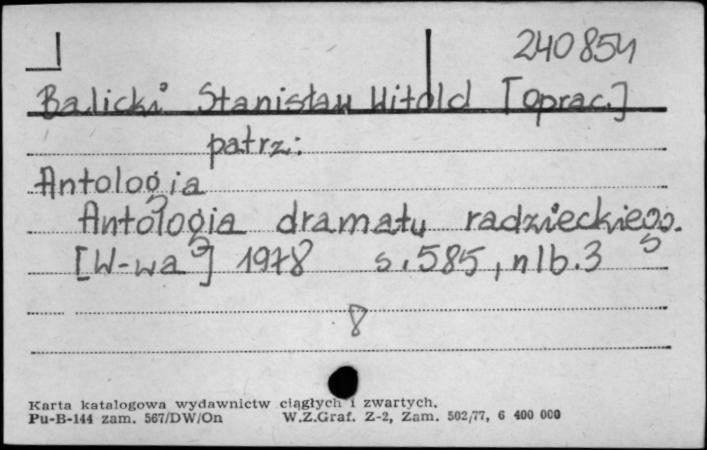 240854
Balicki Stanisław Witold [oprac.]
patrz:
Antologia
Antologia dramatu radzieckiego.
[W-wa] 1978 s. 585, nlb. 3
8
Karta katalogowa wydawnictw ciągłych i zwartych.
Pu-B-144 zam. 567/DW/On W.Z.Graf. Z-2, Zam. 502/77, 6 400 000